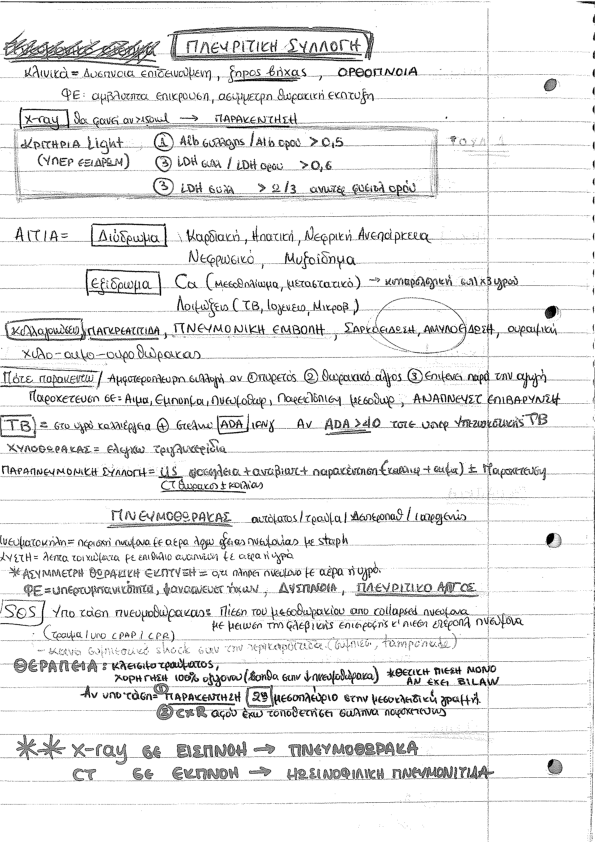 ΠΛΕΥΡΙΤΙΚΗ ΣΥΛΛΟΓΗ
κλινικά = Δυσπνοια επιδεινούμενη, ξηρος βήχας, ορθοπνοια
ΦΕ: αμβλύτητα επικρουση, ασυμμετρη θωρακική εκπτυξη
X-ray θα φανεί αν → ΠΑΡΑΚΕΝΤΗΣΗ
ΚΡΙΤΗΡΙΑ Light ① Alb συλλογης / Alb ορου > 0,5
(ΥΠΕΡ ΕΞΙΔΡΩΜ) ③ LDH συλλ / LDH ορου > 0,6
③ LDH συλλ > 2/3 ανωτερ φυσιολ ορού
ΑΙΤΙΑ = Διύδρωμα Καρδιακή, Ηπατική, Νεφρική Ανεπάρκεια
Νεφρωσικό, Μυξοίδημα
Εξίδρωμα Ca (μεσοθηλίωμα, μεταστατικό) → κυτταρολογική υγρού
Λοιμώξεις (TB, Ιογενειs, Μικροβ)
ΠΑΓΚΡΕΑΤΙΤΙΔΑ, ΠΝΕΥΜΟΝΙΚΗ ΕΜΒΟΛΗ, ΣΑΡΚΟΕΙΔΩΣΗ, ΑΜΥΛΟΕΙΔΩΣΗ, ουραιμική
χυλο-αιμο-ουροθώρακας
Πότε παρακεντω / Αμφοτεροπλευρη συλλογή αν ① πυρετός ② θωρακικό άλγος ③ Επιμενει παρά την αγωγή
Παροχετευση σε = Αιμα, Εμπυημα, Πνευμοθωρ, Παρεκτόπιση μεσοθωρ, ΑΝΑΠΝΕΥΣΤ ΕΠΙΒΑΡΥΝΣΗ
TB = στο υγρό καλλιέργεια ⊕ στελνω ADA / IFNγ Αν ADA > 40 τοτε υπερ TB
ΧΥΛΟΘΩΡΑΚΑΣ = ελεγχω τριγλυκερίδια
ΠΑΡΑΠΝΕΥΜΟΝΙΚΗ ΣΥΛΛΟΓΗ = US + αντιβιωτ + παρακέντηση ± Παροχετευση
CT θωρακος ± κοιλίας
ΠΝΕΥΜΟΘΩΡΑΚΑΣ αυτόματος / τραύμα / Δευτεροπαθ / ιατρογενής
με αέρα λόγω με staph
ΚΥΣΤΗ = λεπτα τοιχώματα με επιθηλιο με αερα ή υγρό
* ΑΣΥΜΜΕΤΡΗ ΘΩΡΑΚΙΚΗ ΕΚΠΤΥΞΗ = με αέρα ή υγρό.
ΦΕ = υπερτυμπανικότητα, ήχων, ΔΥΣΠΝΟΙΑ, ΠΛΕΥΡΙΤΙΚΟ ΑΛΓΟΣ
SOS Υπο τάση πνευμοθώρακας: Πίεση του μεσοθωρακίου απο collapsed πνευμονα
με μειωση της φλεβικής επιστροφής κ' πιεση ετερόπλ πνευμονα
(τραυμα / υπο CPAP / CPR)
shock σαν την περικαρδίτιδα tamponade)
ΘΕΡΑΠΕΙΑ: κλεισιμο τραυματος,
ΧΟΡΗΓΗΣΗ 100% οξυγονου (βοηθα σαν ↓ πνευμοθώρακα) * ΘΕΤΙΚΗ ΠΙΕΣΗ ΜΟΝΟ
ΑΝ ΕΧΕΙ BILAW
Αν υπο τάση = ① ΠΑΡΑΚΕΝΤΗΣΗ 2º μεσοπλεύριο στην μεσοκλειδική γραμμή
② CXR αφου έχω τοποθετήσει σωληνα παροχετευσης
** X-ray σε ΕΙΣΠΝΟΗ → ΠΝΕΥΜΟΘΩΡΑΚΑ
CT σε ΕΚΠΝΟΗ → ΗΩΣΙΝΟΦΙΛΙΚΗ ΠΝΕΥΜΟΝΙΤΙΔΑ